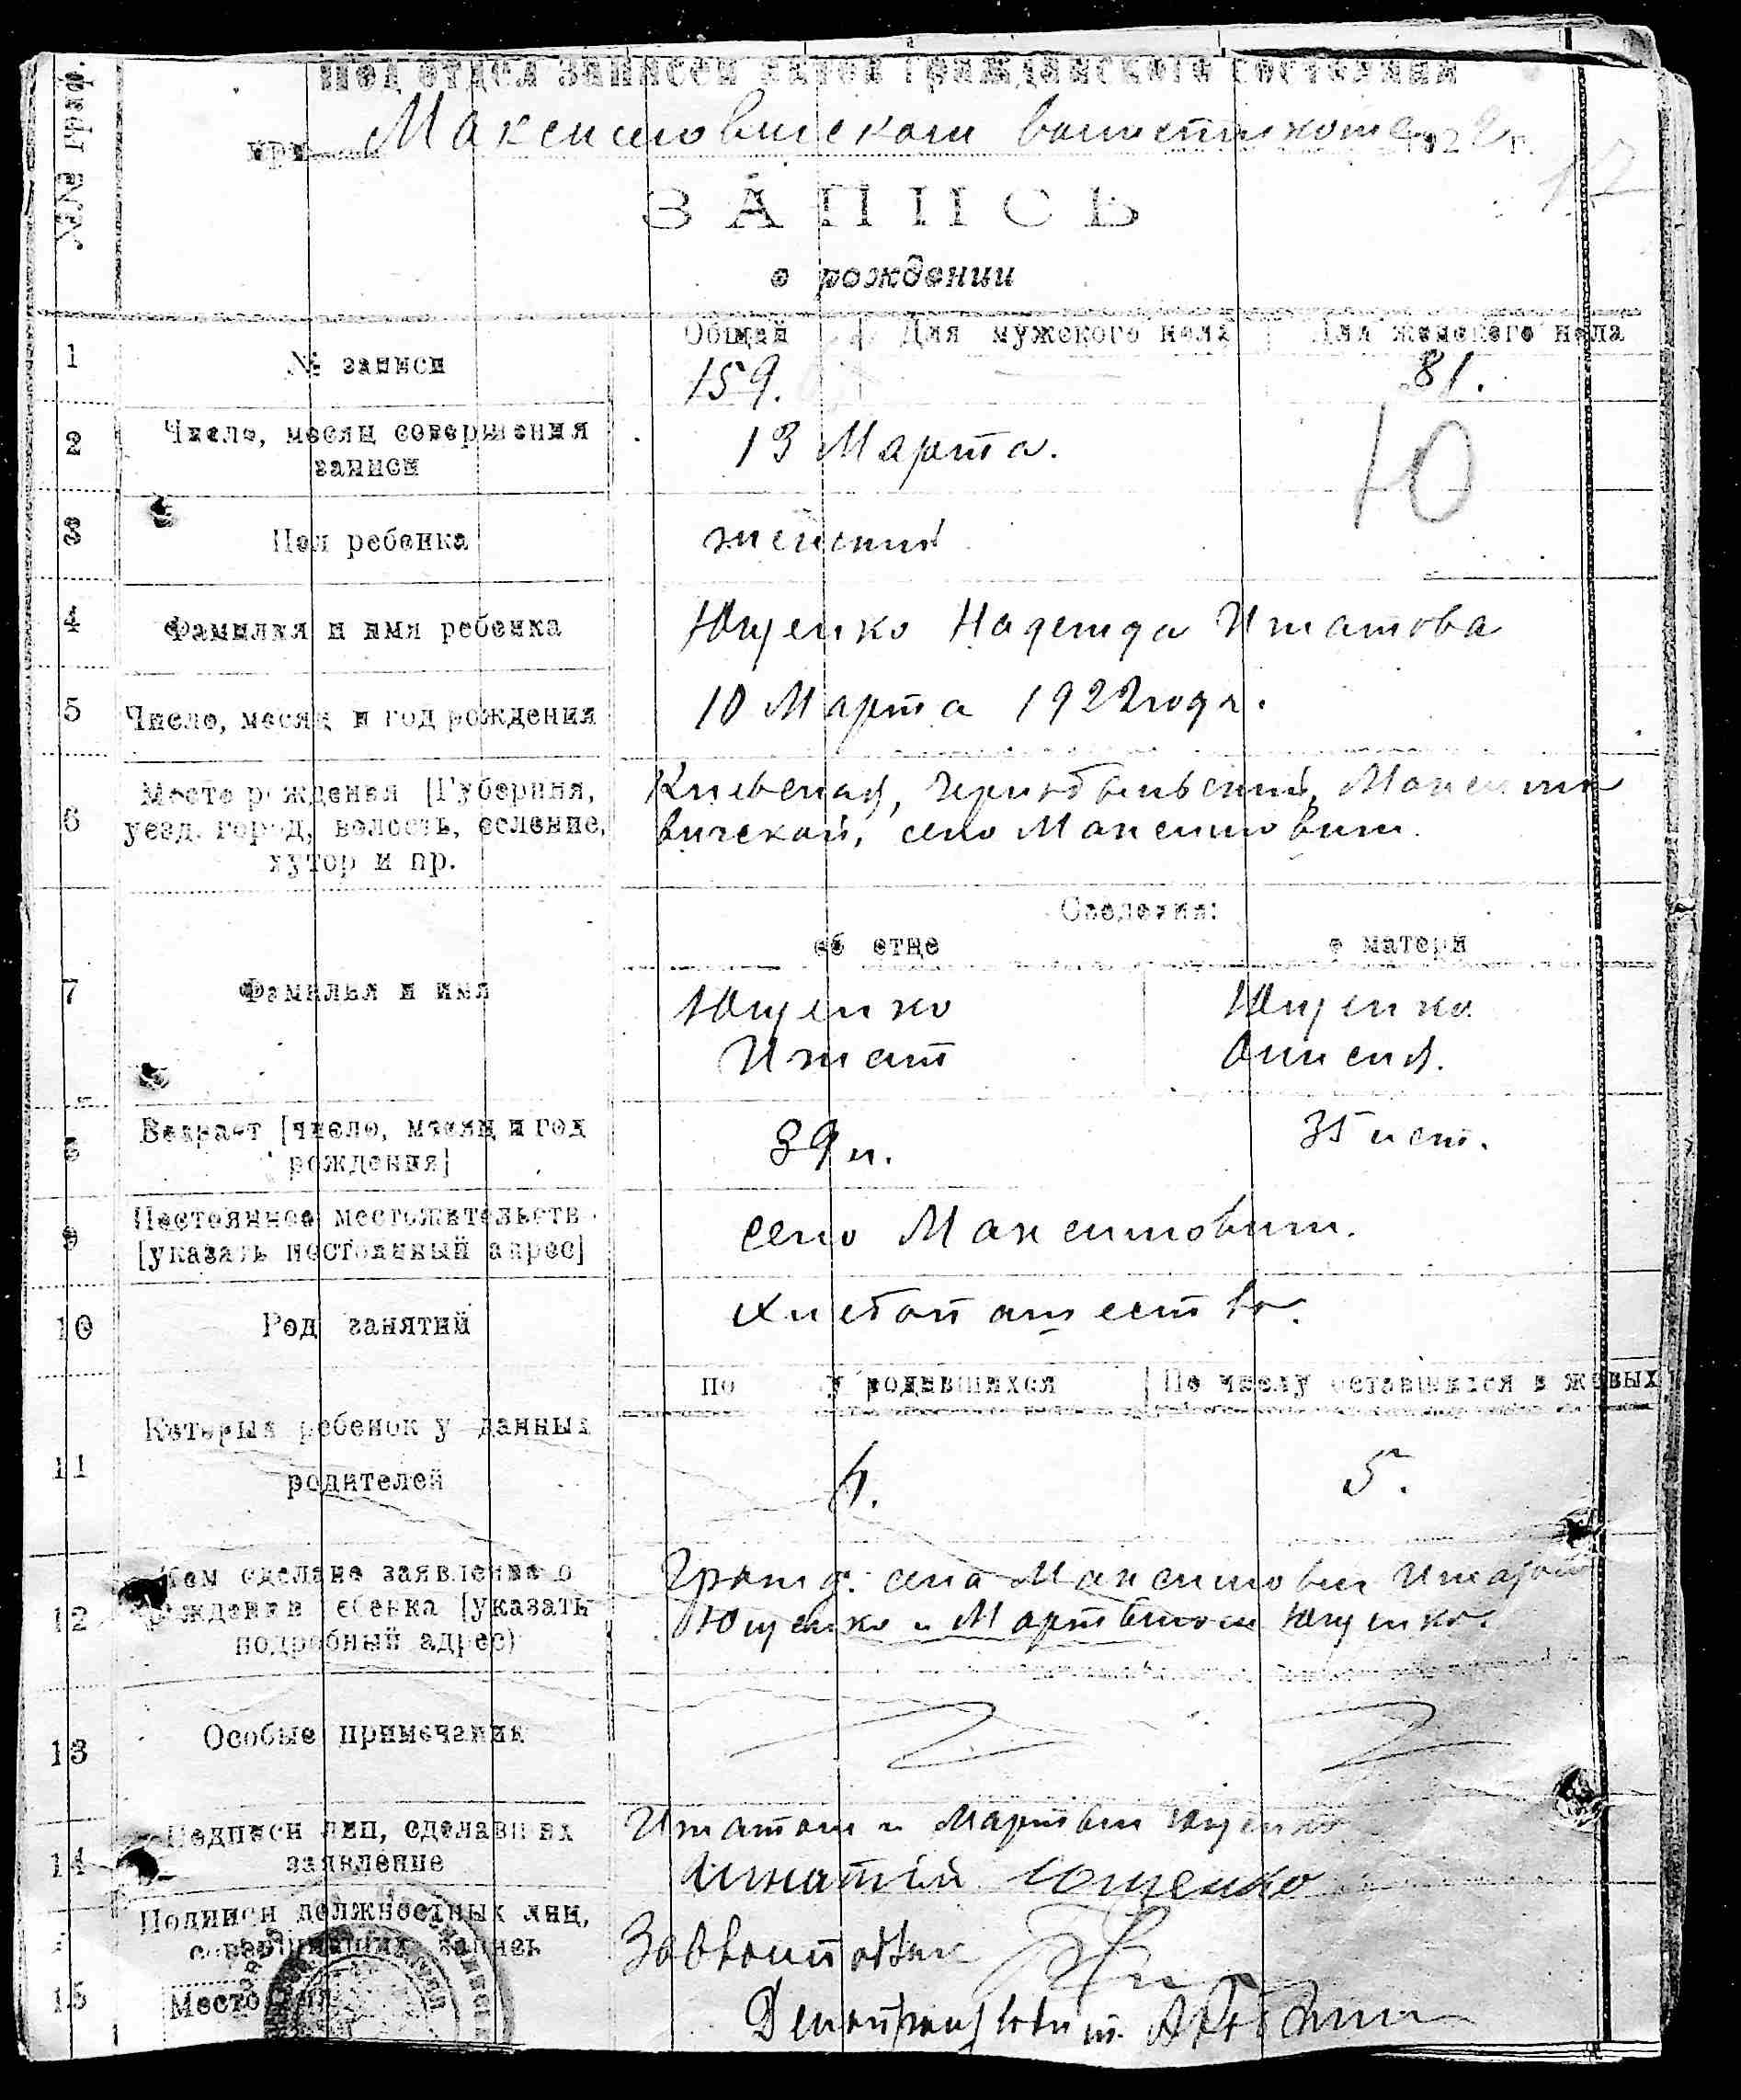 №№ граф.
Под отдел записей актов гражданского состояния
при Максимовическом волостисполкоме 1922 г.
17
ЗАПИСЬ
о рождении
Общий Для мужского пола Для женского пола
1 № записи 159. 81.
2 Число, месяц совершения записи 13 Марта.
10
3 Пол ребенка женский
4 Фамилия и имя ребенка Ющенко Надежда Игнатова
5 Число, месяц и год рождения 10 Марта 1922 года.
6 Место рождения [Губерния, Киевская, Чернобыльский, Максимо
уезд, город, волость, селение, вичской, село Максимовичи.
хутор и пр.
Сведения:
об отце о матери
7 Фамилья и имя Ющенко Ющенко
Игнат
8 Возраст [число, месяц и год рождения] 39 л. 35 лет.
9 Постоянное местожительств
[указать постоянный адрес] село Максимовичи.
10 Род занятий Хлебопашество.
По у родившихся По числу оставшихся в живых
11 Который ребенок у данных
родителей 5.
12 Кем сделано заявление о Гражд. села Максимович Игнатом
рождении ребенка [указать Ющенко и Мартыном Ющенко.
подробный адрес)
13 Особые примечания
Подписи лиц, сделавших Игнатом и Мартын Ющенко
14 заявление Игнатій Ющенко
Подписи должностных лиц,
совершивших запись
15 Место